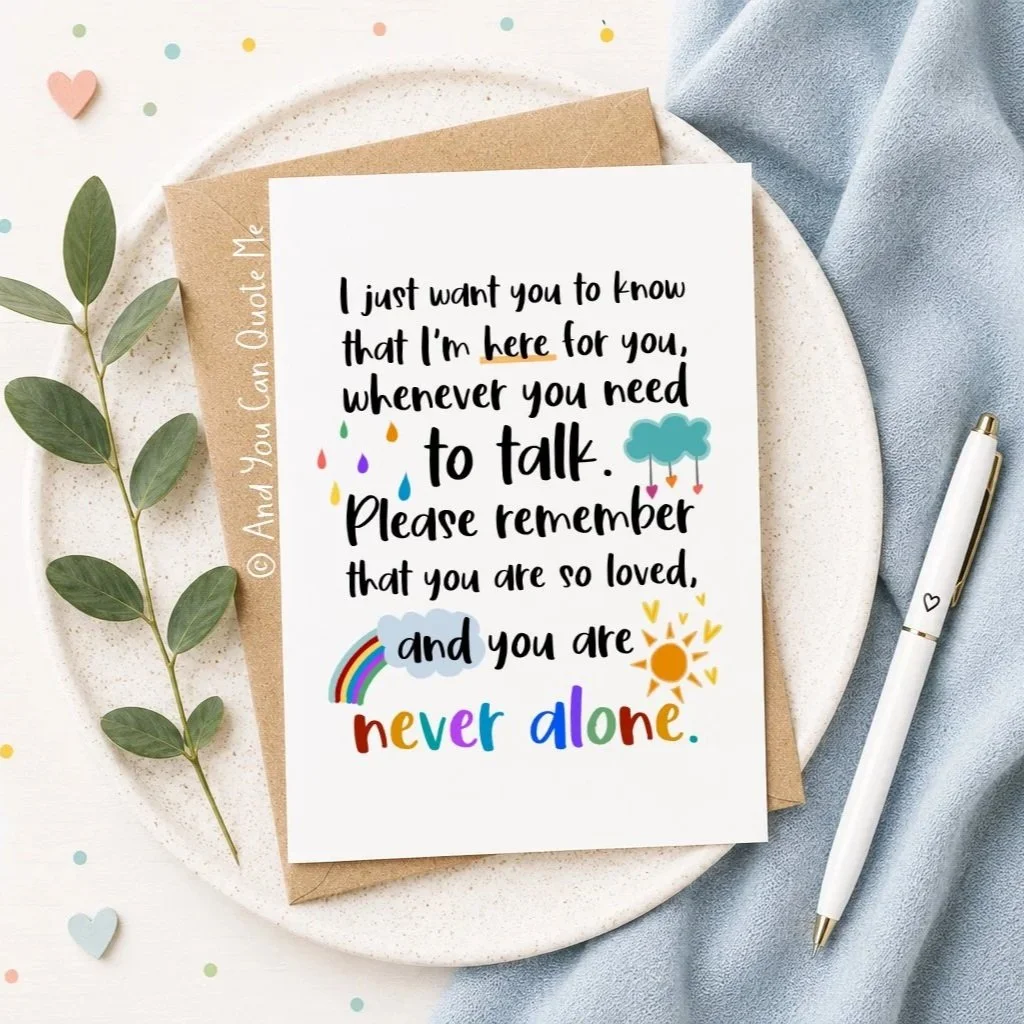 I just want you to know
that I'm here for you,
whenever you need
to talk.
Please remember
that you are so loved,
and you are
never alone.
© And You Can Quote Me